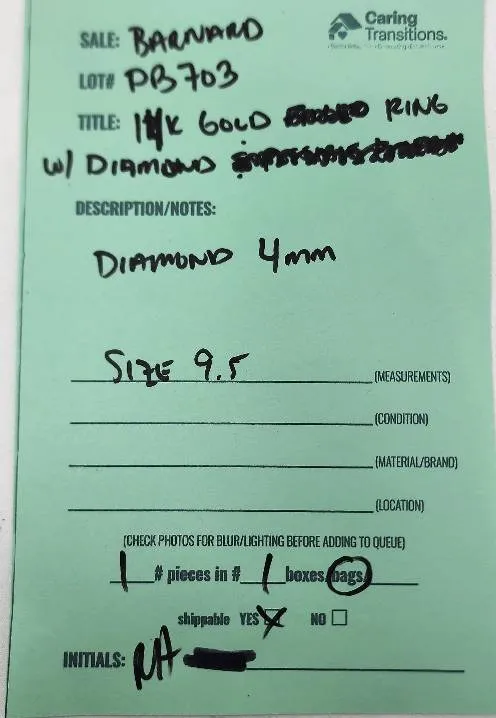 Caring
Transitions.
SALE: BARNARD
LOT# PB703
TITLE: 14K GOLD RING
W/ DIAMOND
DESCRIPTION/NOTES:
DIAMOND 4mm
SIZE 9.5 (MEASUREMENTS)
(CONDITION)
(MATERIAL/BRAND)
(LOCATION)
(CHECK PHOTOS FOR BLUR/LIGHTING BEFORE ADDING TO QUEUE)
1 # pieces in # 1 boxes/bags
shippable YES NO
INITIALS: